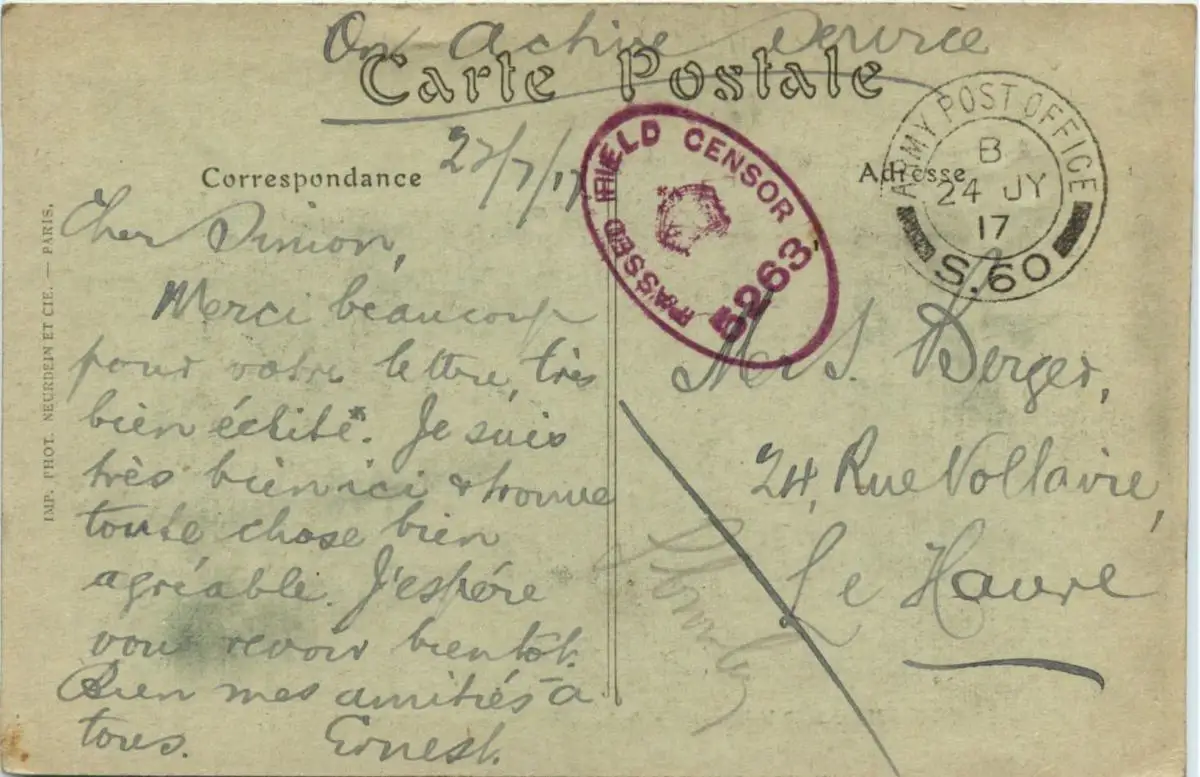 On Active Service
Carte Postale
Correspondance
Adresse
23/7/17
ARMY POST OFFICE
B
24 JY
17
S.60
PASSED FIELD CENSOR
5263
Cher Simon,
Merci beaucoup
pour votre lettre, très
bien écrite*. Je suis
très bien ici & trouve
toute chose bien
agréable. J'espére
vous revoir bientôt.
Bien mes amitiés à
tous. Ernest.
Mr S. Berger,
24, Rue Voltaire,
Le Havre
IMP. PHOT. NEURDEIN ET CIE. — PARIS.